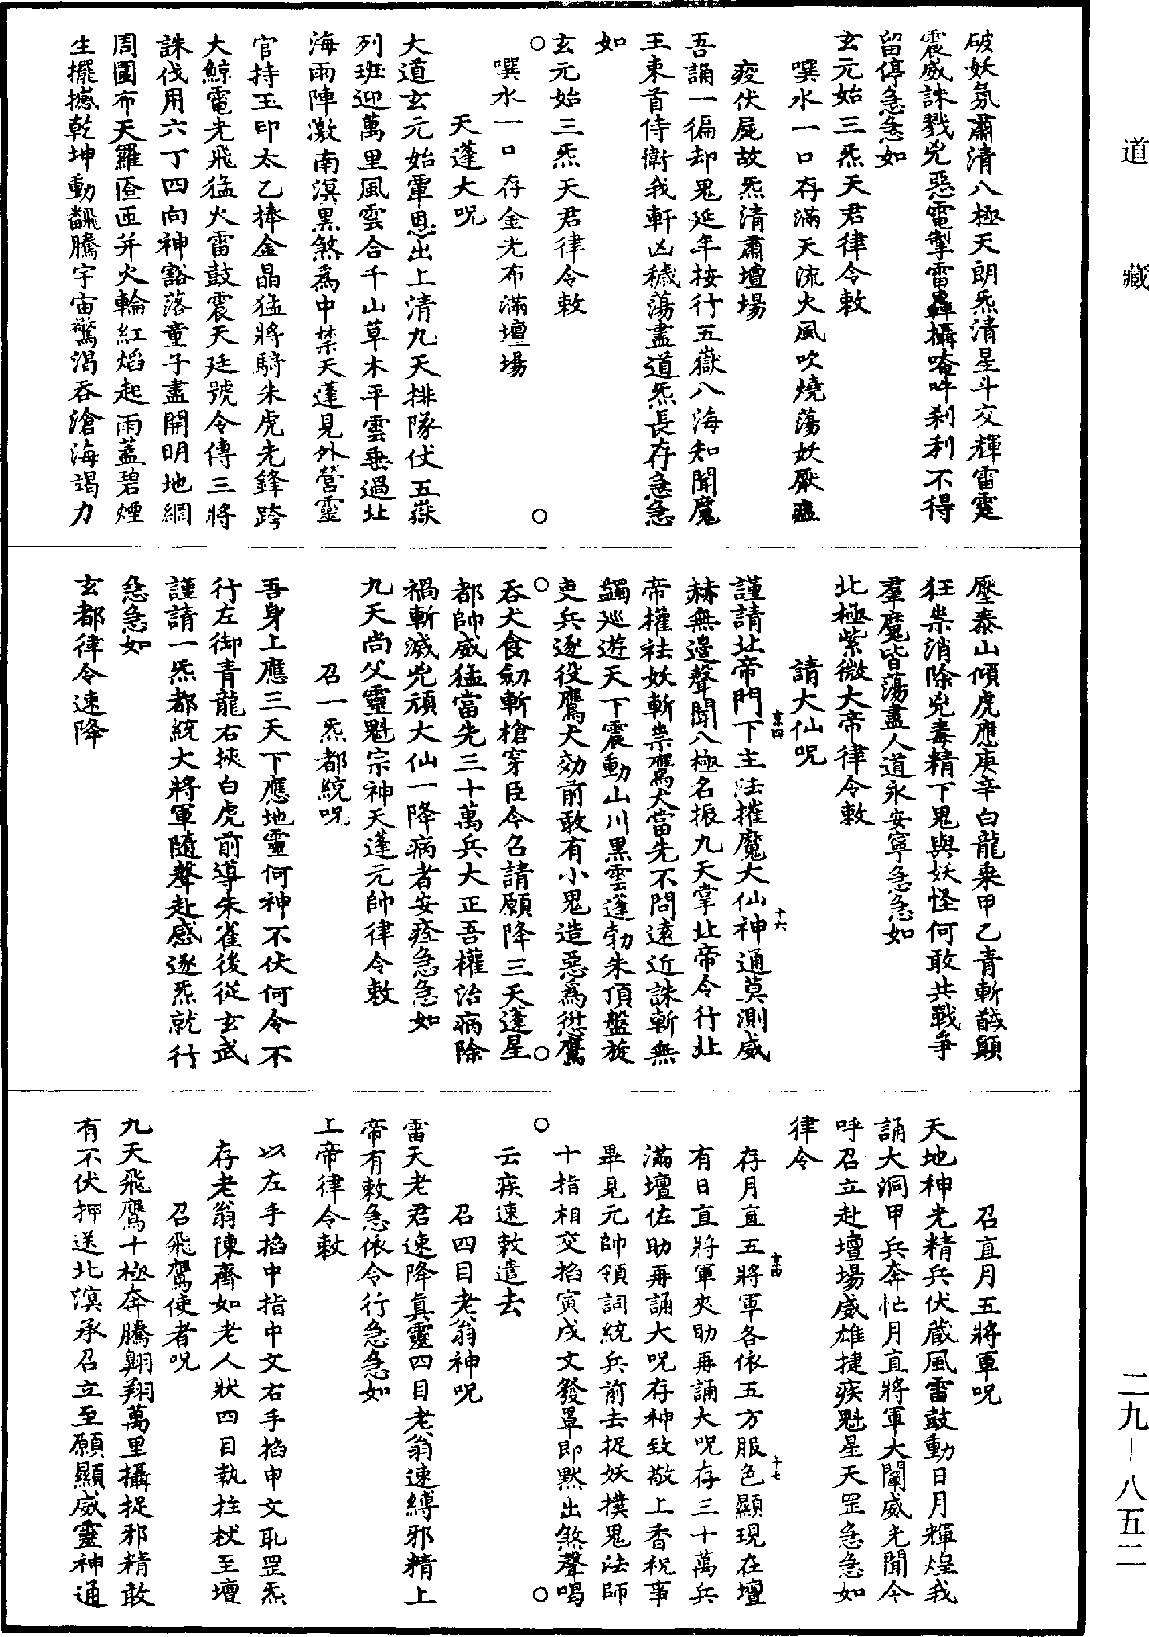 破妖氛肅清八極天朗炁清星斗交輝雷霆
震威誅戮兇惡電掣雷轟攝唵吽剎利不得
留停急急如
玄元始三炁天君律令敕
噀水一口存滿天流火風吹燒蕩妖厭蠱
疫伏屍故炁清肅壇場
吾誦一徧却鬼延年按行五嶽八海知聞魔
王束首侍衛我軒凶穢蕩盡道炁長存急急
如
玄元始三炁天君律令敕
噀水一口存金光布滿壇場
天蓬大呪
大道玄元始覃恩出上清九天排隊伏五嶽
列班迎萬里風雲合千山草木平雲垂過北
海雨陣激南溟黑煞為中禁天蓬見外營靈
官持玉印太乙捧金晶猛將騎朱虎先鋒跨
大鯨電光飛猛火雷鼓震天廷號令傳三將
誅伐用六丁四向神豁落童子盡開明地網
周圍布天羅匝匝并火輪紅焰起雨蓋碧煙
生擺撼乾坤動飜騰宇宙驚渴吞滄海竭力
壓泰山傾虎應庚辛白龍乘甲乙青斬馘顛
狂祟消除兇毒精下鬼與妖怪何敢共戰爭
羣魔皆蕩盡人道永安寧急急如
北極紫微大帝律令敕
請大仙呪
謹請北帝門下主法摧魔大仙神通莫測威
赫無邊聲聞八極名振九天掌北帝令行北
帝權祛妖斬祟鷹犬當先不問遠近誅斬無
蠲巡遊天下震動山川黑雲蓬勃朱頂盤旋
吏兵逐役鷹犬効前敢有小鬼造惡為愆鷹
吞犬食劒斬槍穿臣今召請願降三天蓬星
都帥威猛當先三十萬兵大正吾權治病除
禍斬滅兇頑大仙一降病者安痊急急如
九天尚父靈魁宗神天蓬元帥律令敕
召一炁都統呪
吾身上應三天下應地靈何神不伏何令不
行左御青龍右挾白虎前導朱雀後從玄武
謹請一炁都統大將軍隨聲赴感逐炁就行
急急如
玄都律令速降
召直月五將軍呪
天地神光精兵伏藏風雷鼓動日月輝煌我
誦大洞甲兵奔忙月直將軍大闡威光聞今
呼召立赴壇場威雄捷疾魁星天罡急急如
律令
存月直五將軍各依五方服色顯現在壇
有日直將軍夾助再誦大呪存三十萬兵
滿壇佐助再誦大呪存神致敬上香祝事
畢見元帥領詞統兵前去捉妖撲鬼法師
十指相交掐寅戌文發罩即默出煞聲喝
云疾速敕遣去
召四目老翁神呪
雷天老君速降真靈四目老翁速縛邪精上
帝有敕急依令行急急如
上帝律令敕
以左手掐中指中文右手掐申文取罡炁
存老翁陳齊如老人狀四目執拄杖至壇
召飛鷹使者呪
九天飛鷹十極奔騰翺翔萬里攝捉邪精敢
有不伏押送北溟承召立至願顯威靈神通
道藏
二九—八五二